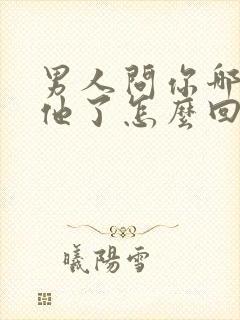 男人問你哪
他了怎麼回
曦陽雪